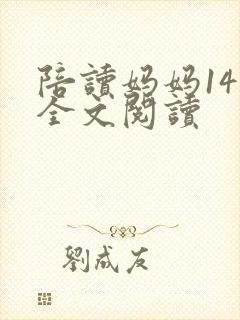 陪讀妈妈14
全文閱讀
劉成友